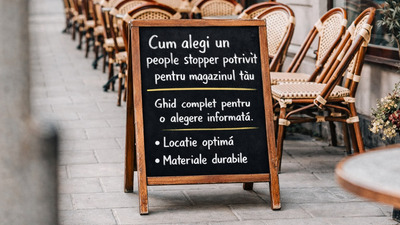 Cum alegi un
people stopper potrivit
pentru magazinul tàu
Ghid complet pentru
o alegere informată.
• Locatie optimă
• Materiale durabile